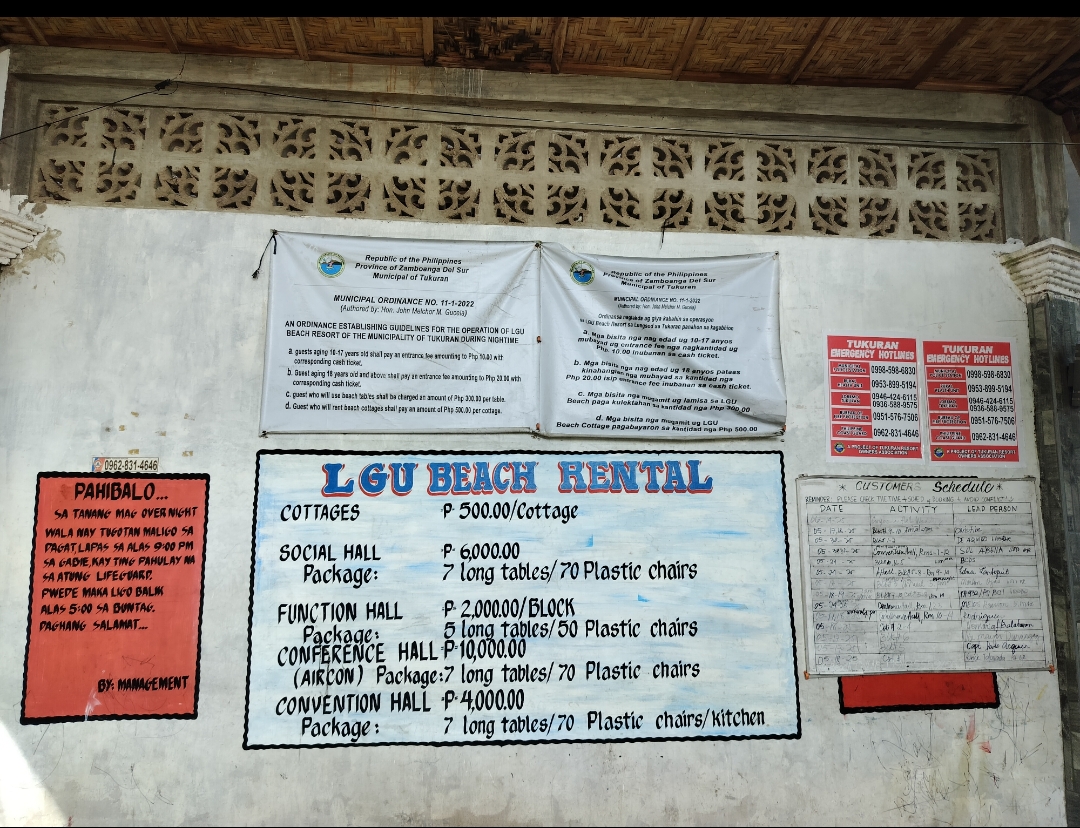 Republic of the Philippines
Province of Zamboanga Del Sur
Municipal of Tukuran
MUNICIPAL ORDINANCE NO. 11-1-2022
(Authored by: Hon. John Melchor M. Gucela)
AN ORDINANCE ESTABLISHING GUIDELINES FOR THE OPERATION OF LGU
BEACH RESORT OF THE MUNICIPALITY OF TUKURAN DURING NIGHTTIME
a. guests aging 10-17 years old shall pay an entrance fee amounting to Php 10.00 with
corresponding cash ticket.
b. Guest aging 18 years old and above shall pay an entrance fee amounting to Php 20.00 with
corresponding cash ticket.
c. guest who will use beach tables shall be charged an amount of Php 300.00 per table.
d. Guest who will rent beach cottages shall pay an amount of Php 500.00 per cottage.
Republic of the Philippines
Province of Zamboanga Del Sur
Municipal of Tukuran
MUNICIPAL ORDINANCE NO. 11-1-2022
(Authored by: Hon. John Melchor M. Gucela)
Ordinansa naglatda ug giya kabahin sa operasyon
sa LGU Beach Resort sa Lungsod sa Tukuran panahon sa kagabhion
a. Mga bisita nga nag edad ug 10-17 anyos
mubayad ug entrance fee nga nagkantidad ug
Php 10.00 inubanan sa cash ticket.
b. Mga bisita nga nag edad ug 18 anyos pataas
kinahanglan nga mubayad sa kantidad nga
Php 20.00 isip entrance fee inubanan sa cash ticket.
c. Mga bisita nga mugamit ug lamisa sa LGU
Beach paga kulektahan sa kantidad nga Php 300.00
d. Mga bisita nga mugamit ug LGU
Beach Cottage pagabayaron sa kantidad nga Php 500.00
TUKURAN
EMERGENCY HOTLINES
0998-598-6830
0953-899-5194
0946-424-6115
0936-588-9575
0951-576-7506
0962-831-4646
A PROJECT OF TUKURAN RESORT
OWNERS ASSOCIATION
TUKURAN
EMERGENCY HOTLINES
0998-598-6830
0953-899-5194
0946-424-6115
0936-588-9575
0951-576-7506
0962-831-4646
A PROJECT OF TUKURAN RESORT
OWNERS ASSOCIATION
0962-831-4646
PAHIBALO...
SA TANANG MAG OVERNIGHT
WALA NAY TUGOTAN MALIGO SA
DAGAT, LAPAS SA ALAS 9:00 PM
SA GABIE, KAY TING PAHULAY NA
SA ATUNG LIFEGUARD.
PWEDE MAKA LIGO BALIK
ALAS 5:00 SA BUNTAG.
DAGHANG SALAMAT...
BY: MANAGEMENT
LGU BEACH RENTAL
COTTAGES ₱ 500.00/Cottage
SOCIAL HALL ₱ 6,000.00
Package: 7 long tables/70 Plastic chairs
FUNCTION HALL ₱ 2,000.00/BLOCK
Package: 5 long tables/50 Plastic chairs
CONFERENCE HALL ₱ 10,000.00
(AIRCON) Package: 7 long tables/ 70 Plastic chairs
CONVENTION HALL ₱ 4,000.00
Package: 7 long tables/70 Plastic chairs/kitchen
* CUSTOMERS Schedule *
REMINDER: PLEASE CHECK THE TIME & SCHED
DATE ACTIVITY LEAD PERSON